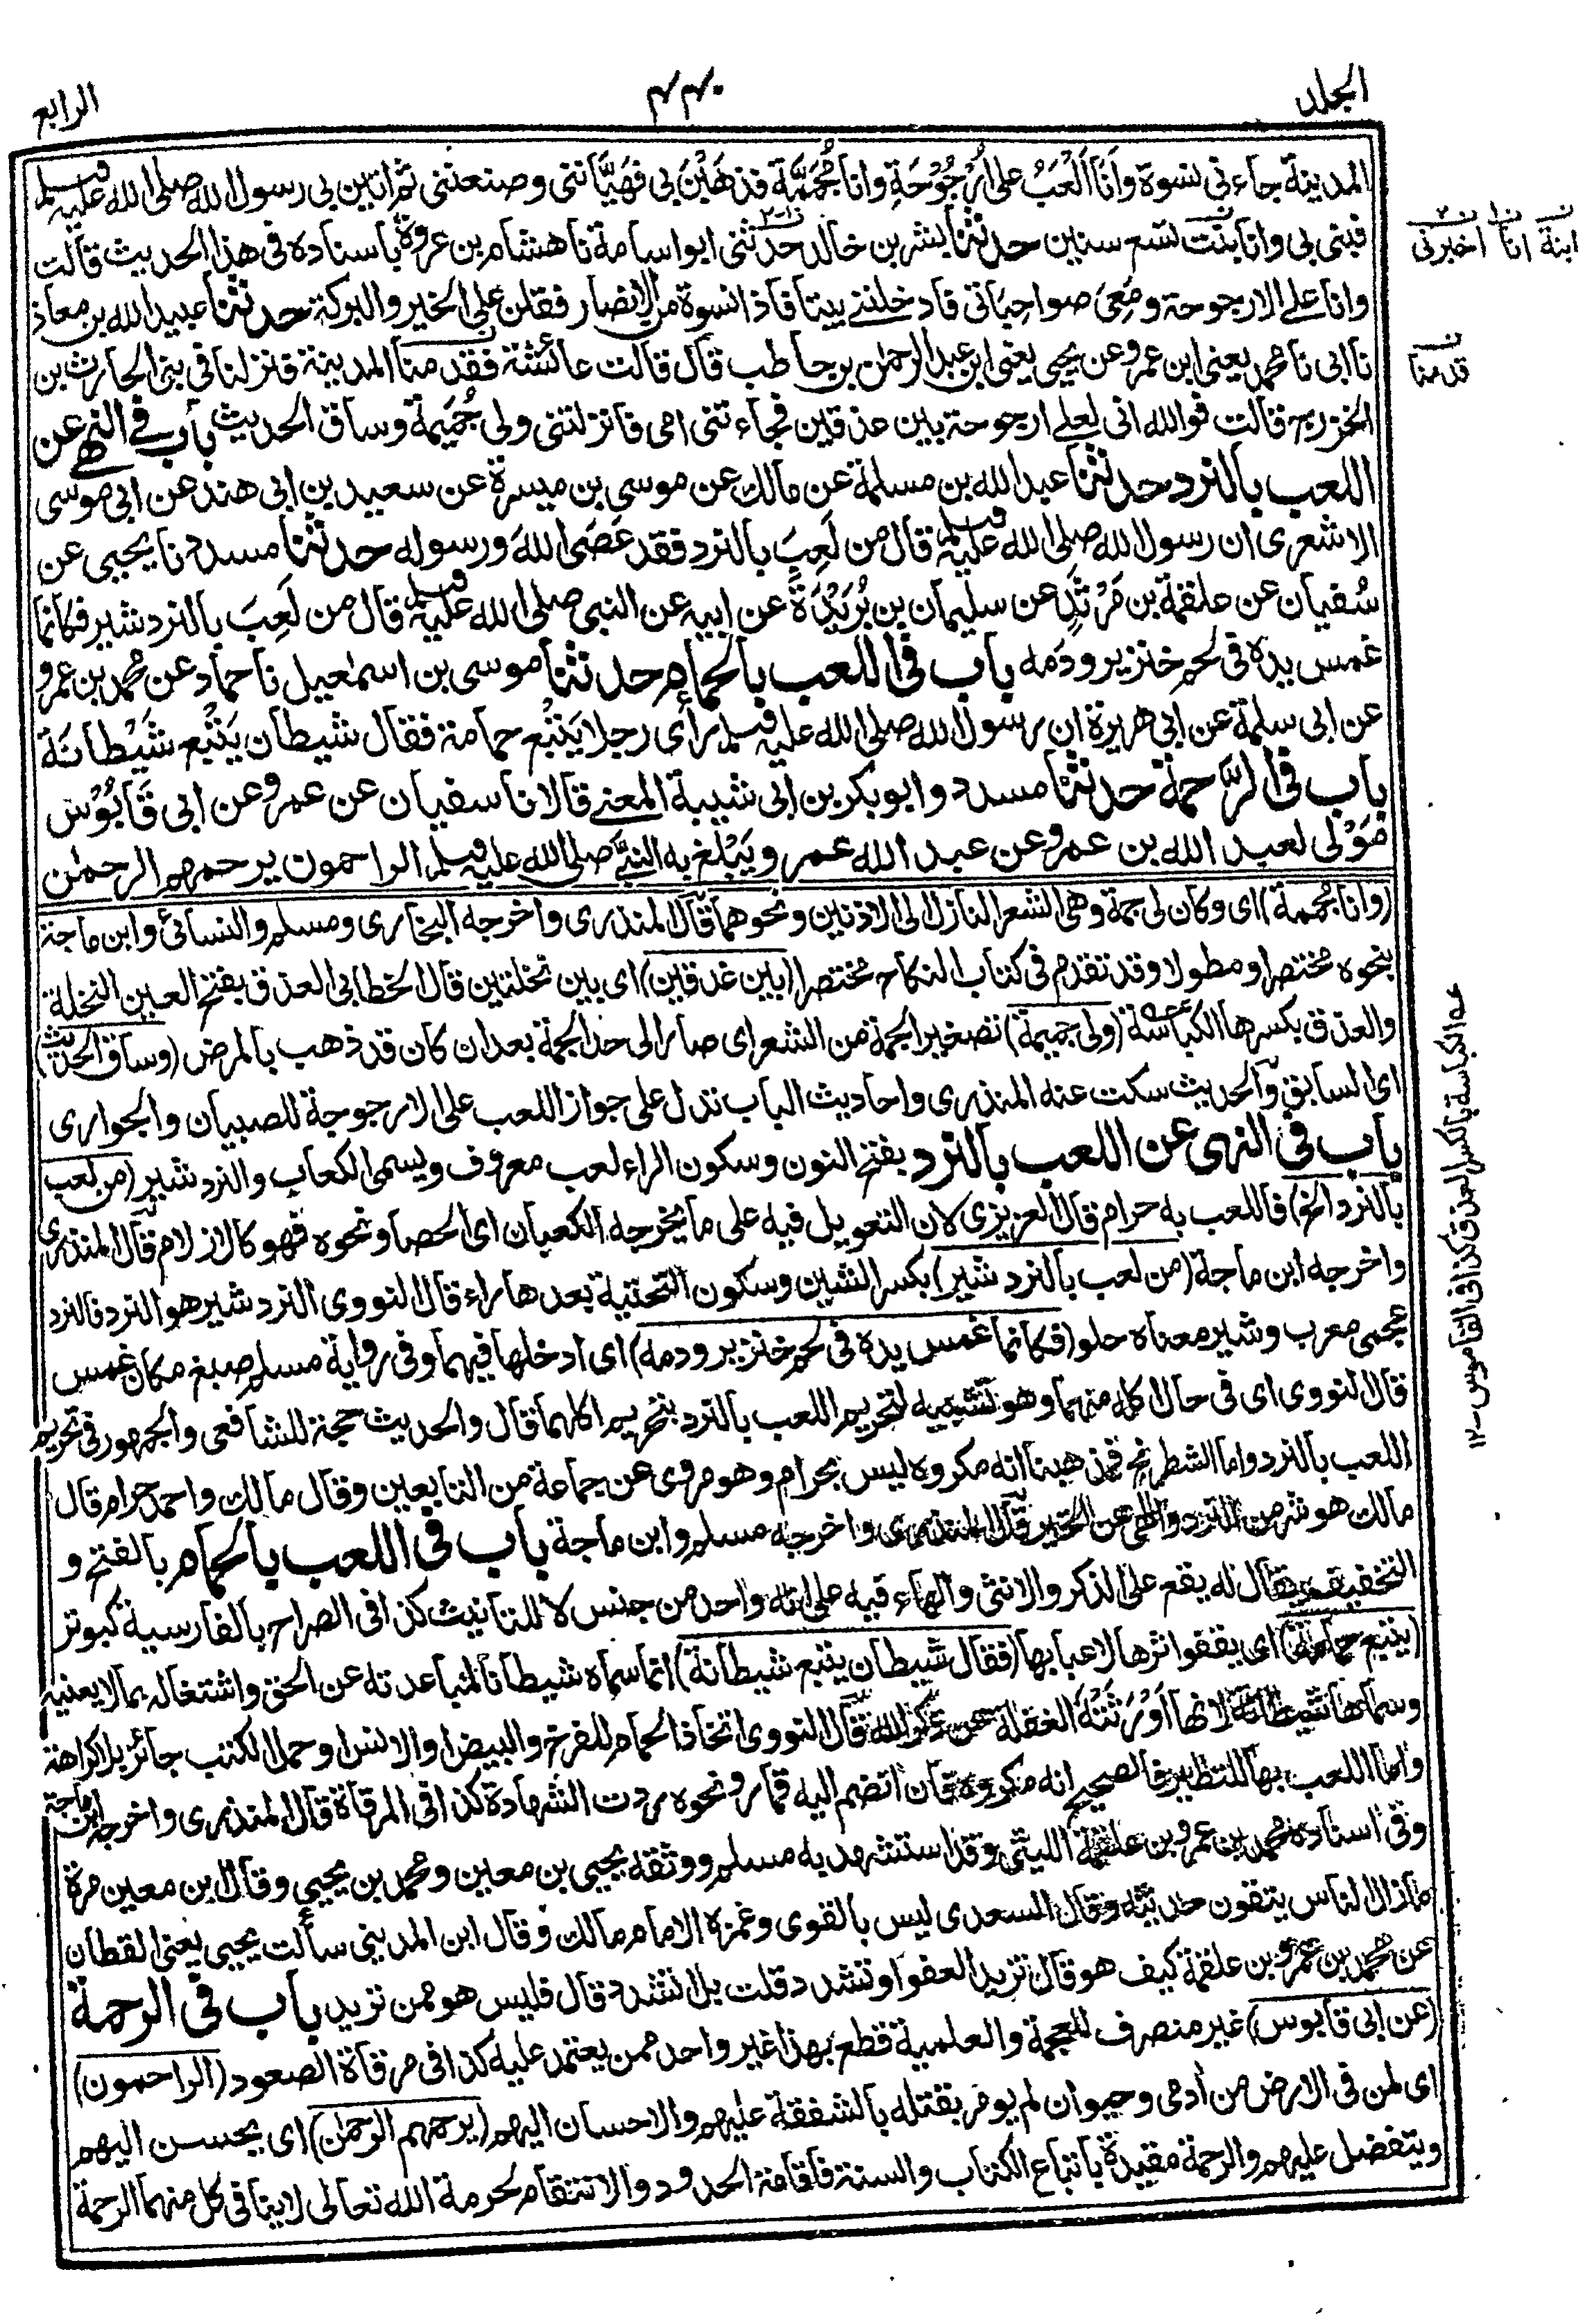 الجلد
۴۴۰
الرابع
المدينة جاءني نسوة وَاَنَا اَلْعَبُ على اُرْجُوْحَةٍ وانا مُجَمَّمَة فذهَبْنَ بي فَهَيَّأنني وصنعنني ثم اتين بي رسول الله صلى الله عليه وسلم
فبنى بي وانا بنت تسع سنين حدثنا بشر بن خالد حدثني ابو اسامة نا هشام بن عروة باسناده في هذا الحديث قالت
وانا على الارجوحة ومَعِيَ صواحباتي فادخلنني بيتا فاذا نسوة من الانصار فقلن على الخير والبركة حدثنا عبيد الله بن معاذ
نا ابي نا محمد يعني ابن عمرو عن يحيى يعني ابن عبد الرحمن بن حاطب قال قالت عائشة فقدمنا المدينة فنزلنا في بني الحارث بن
الخزرج قالت فوالله اني لعلى ارجوحة بين عذقين فجاءتني امي فانزلتني ولي جُمَيْمَة وساق الحديث باب في النهي عن
اللعب بالنرد حدثنا عبد الله بن مسلمة عن مالك عن موسى بن ميسرة عن سعيد بن ابي هند عن ابي موسى
الاشعري ان رسول الله صلى الله عليه وسلم قال من لَعِبَ بالنرد فقد عَصَى اللهَ ورسوله حدثنا مسدد نا يحيى عن
سُفيان عن علقمة بن مَرْثَدٍ عن سليمان بن بُرَيْدَةَ عن ابيه عن النبي صلى الله عليه وسلم قال من لَعِبَ بالنرد شير فكانما
غمس يده في لحم خنزير ودمه باب في اللعب بالحمام حدثنا موسى بن اسمعيل نا حماد عن محمد بن عمرو
عن ابي سلمة عن ابي هريرة ان رسول الله صلى الله عليه وسلم رأى رجلا يَتْبَع حمامة فقال شيطان يَتْبَع شَيْطانَة
باب في الرَّحمة حدثنا مسدد وابو بكر بن ابي شيبة المعنى قالا نا سفيان عن عمرو عن ابي قَابُوْس
مَوْلى لعبد الله بن عمرو عن عبد الله عمرو يَبْلُغ به النبيَّ صلى الله عليه وسلم الراحمون يرحمهم الرحمن
(وانا مجممة) اى وكان لي جمة وهي الشعر النازل الى الاذنين ونحوهما قال المنذري واخرجه البخاري ومسلم والنسائي وابن ماجة
بنحوه مختصرا ومطولا وقد تقدم في كتاب النكاح مختصرا (بين عذقين) اى بين نخلتين قال الخطابي العذق بفتح العين النخلة
والعذق بكسرها الكباسة (ولي جميمة) تصغير الجمة من الشعر اى صار الى حد الجمة بعد ان كان قد ذهب بالمرض (وساق الحديث)
اى السابق والحديث سكت عنه المنذري واحاديث الباب تدل على جواز اللعب على الارجوحة للصبيان والجواري
باب في النهى عن اللعب بالنرد بفتح النون وسكون الراء لعب معروف ويسمى الكعاب والنرد شير (من لعب
بالنرد الخ) فاللعب به حرام قال العزيزي لان التعويل فيه على ما يخرجه الكعبان اى الحصا ونحوه فهو كالازلام قال المنذري
واخرجه ابن ماجة (من لعب بالنرد شير) بكسر الشين وسكون التحتية بعدها راء قال النووي النرد شير هو النرد فالنرد
عجمي معرب وشير معناه حلو (فكانما غمس يده في لحم خنزير ودمه) اى ادخلها فيهما وفي رواية مسلم صبغ مكان غمس
قال النووي اى في حال اكله منهما وهو تشبيه لتحريم اللعب بالنرد بتحريم اكلهما قال والحديث حجة للشافعي والجمهور في تحريم
اللعب بالنرد واما الشطرنج فمذهبنا انه مكروه ليس بحرام وهو مروى عن جماعة من التابعين وقال مالك واحمد حرام قال
مالك هو شر من النرد والهى عن الخير قال المنذري واخرجه مسلم وابن ماجة باب في اللعب بالحمام بالفتح و
التخفيف يقال له يقع على الذكر والانثى والهاء فيه على انه واحد من جنس لا للتانيث كذا في الصراح بالفارسية كبوتر
(يتبع حمامة) اى يقفو اثرها لاعبا بها (فقال شيطان يتبع شيطانة) انما سماه شيطانا لمباعدته عن الحق واشتغاله بما لا يعنيه
وسماها شيطانة لانها اَوْرَثَتْهُ الغفلة عن ذكر الله قال النووي اتخاذ الحمام للفرخ والبيض او الانس او حمل الكتب جائز بلا كراهة
واما اللعب بها للتطير فالصحيح انه مكروه فان انضم اليه قمار ونحوه ردت الشهادة كذا في المرقاة قال المنذري واخرجه ابن ماجة
وفي اسناده محمد بن عمرو بن علقمة الليثي وقد استشهد به مسلم ووثقه يحيى بن معين ومحمد بن يحيى وقال ابن معين مرة
مازال الناس يتقون حديثه وقال السعدي ليس بالقوي وغمزه الامام مالك وقال ابن المديني سألت يحيى يعني القطان
عن محمد بن عمرو بن علقمة كيف هو قال تريد العفو او تشدد قلت بل اشدد قال فليس هو ممن تريد باب في الرحمة
(عن ابي قابوس) غير منصرف للعجمة والعلمية قطع بهذا غير واحد ممن يعتمد عليه كذا في مرقاة الصعود (الراحمون)
اى لمن في الارض من آدمي وحيوان لم يومر بقتله بالشفقة عليهم والاحسان اليهم (يرحمهم الرحمن) اى يحسن اليهم
ويتفضل عليهم والرحمة مقيدة باتباع الكتاب والسنة فاقامة الحدود والانتقام لحرمة الله تعالى لا ينافي كل منهما الرحمة
ابنة انا اخبرني
قدمنا
عه الكباسة بالكسر العذق كذا في القاموس ۱۲